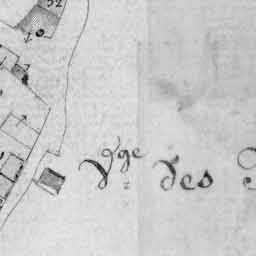 52
Vge des